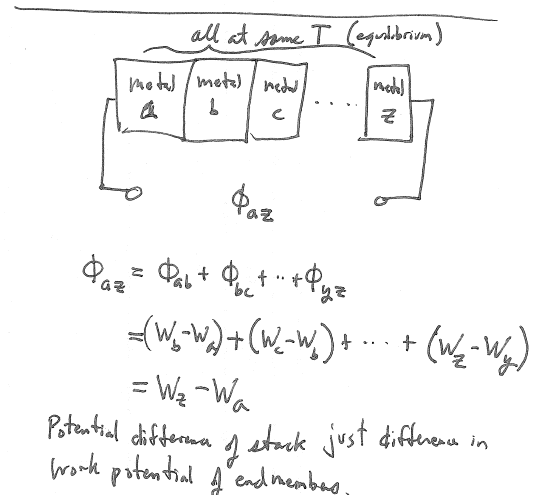 all at same T (equilibrium)
metal a metal b metal c .... metal z
ϕ_az
ϕ_az = ϕ_ab + ϕ_bc + ·· + ϕ_yz
=(W_b-W_a)+(W_c-W_b)+ ··· + (W_z-W_y)
= W_z - W_a
Potential difference of stack just difference in
work potential of endmembers.